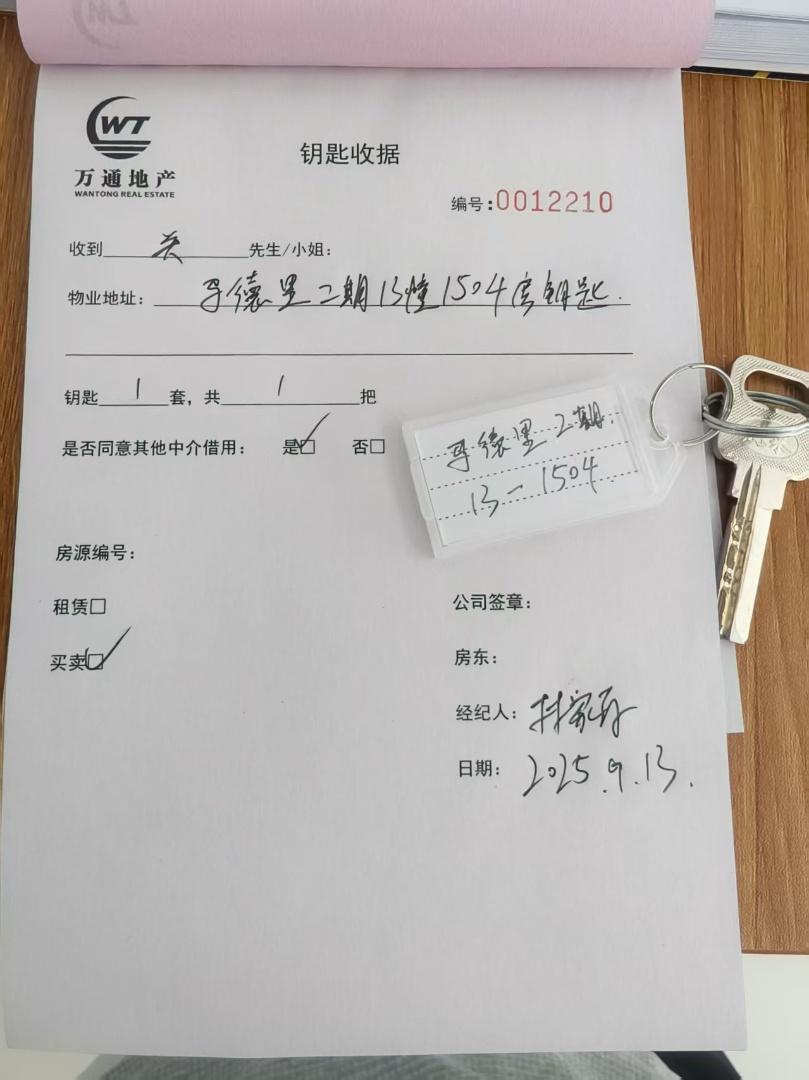 WT
万通地产
WANTONG REAL ESTATE
钥匙收据
编号:0012210
收到 关 先生/小姐:
物业地址: 德里二期13幢1504房钥匙.
钥匙 1 套，共 1 把
是否同意其他中介借用: 是☑ 否□
德里二期.
13-1504
房源编号:
租赁□
买卖☑
公司签章:
房东:
经纪人:
日期: 2025.9.13.